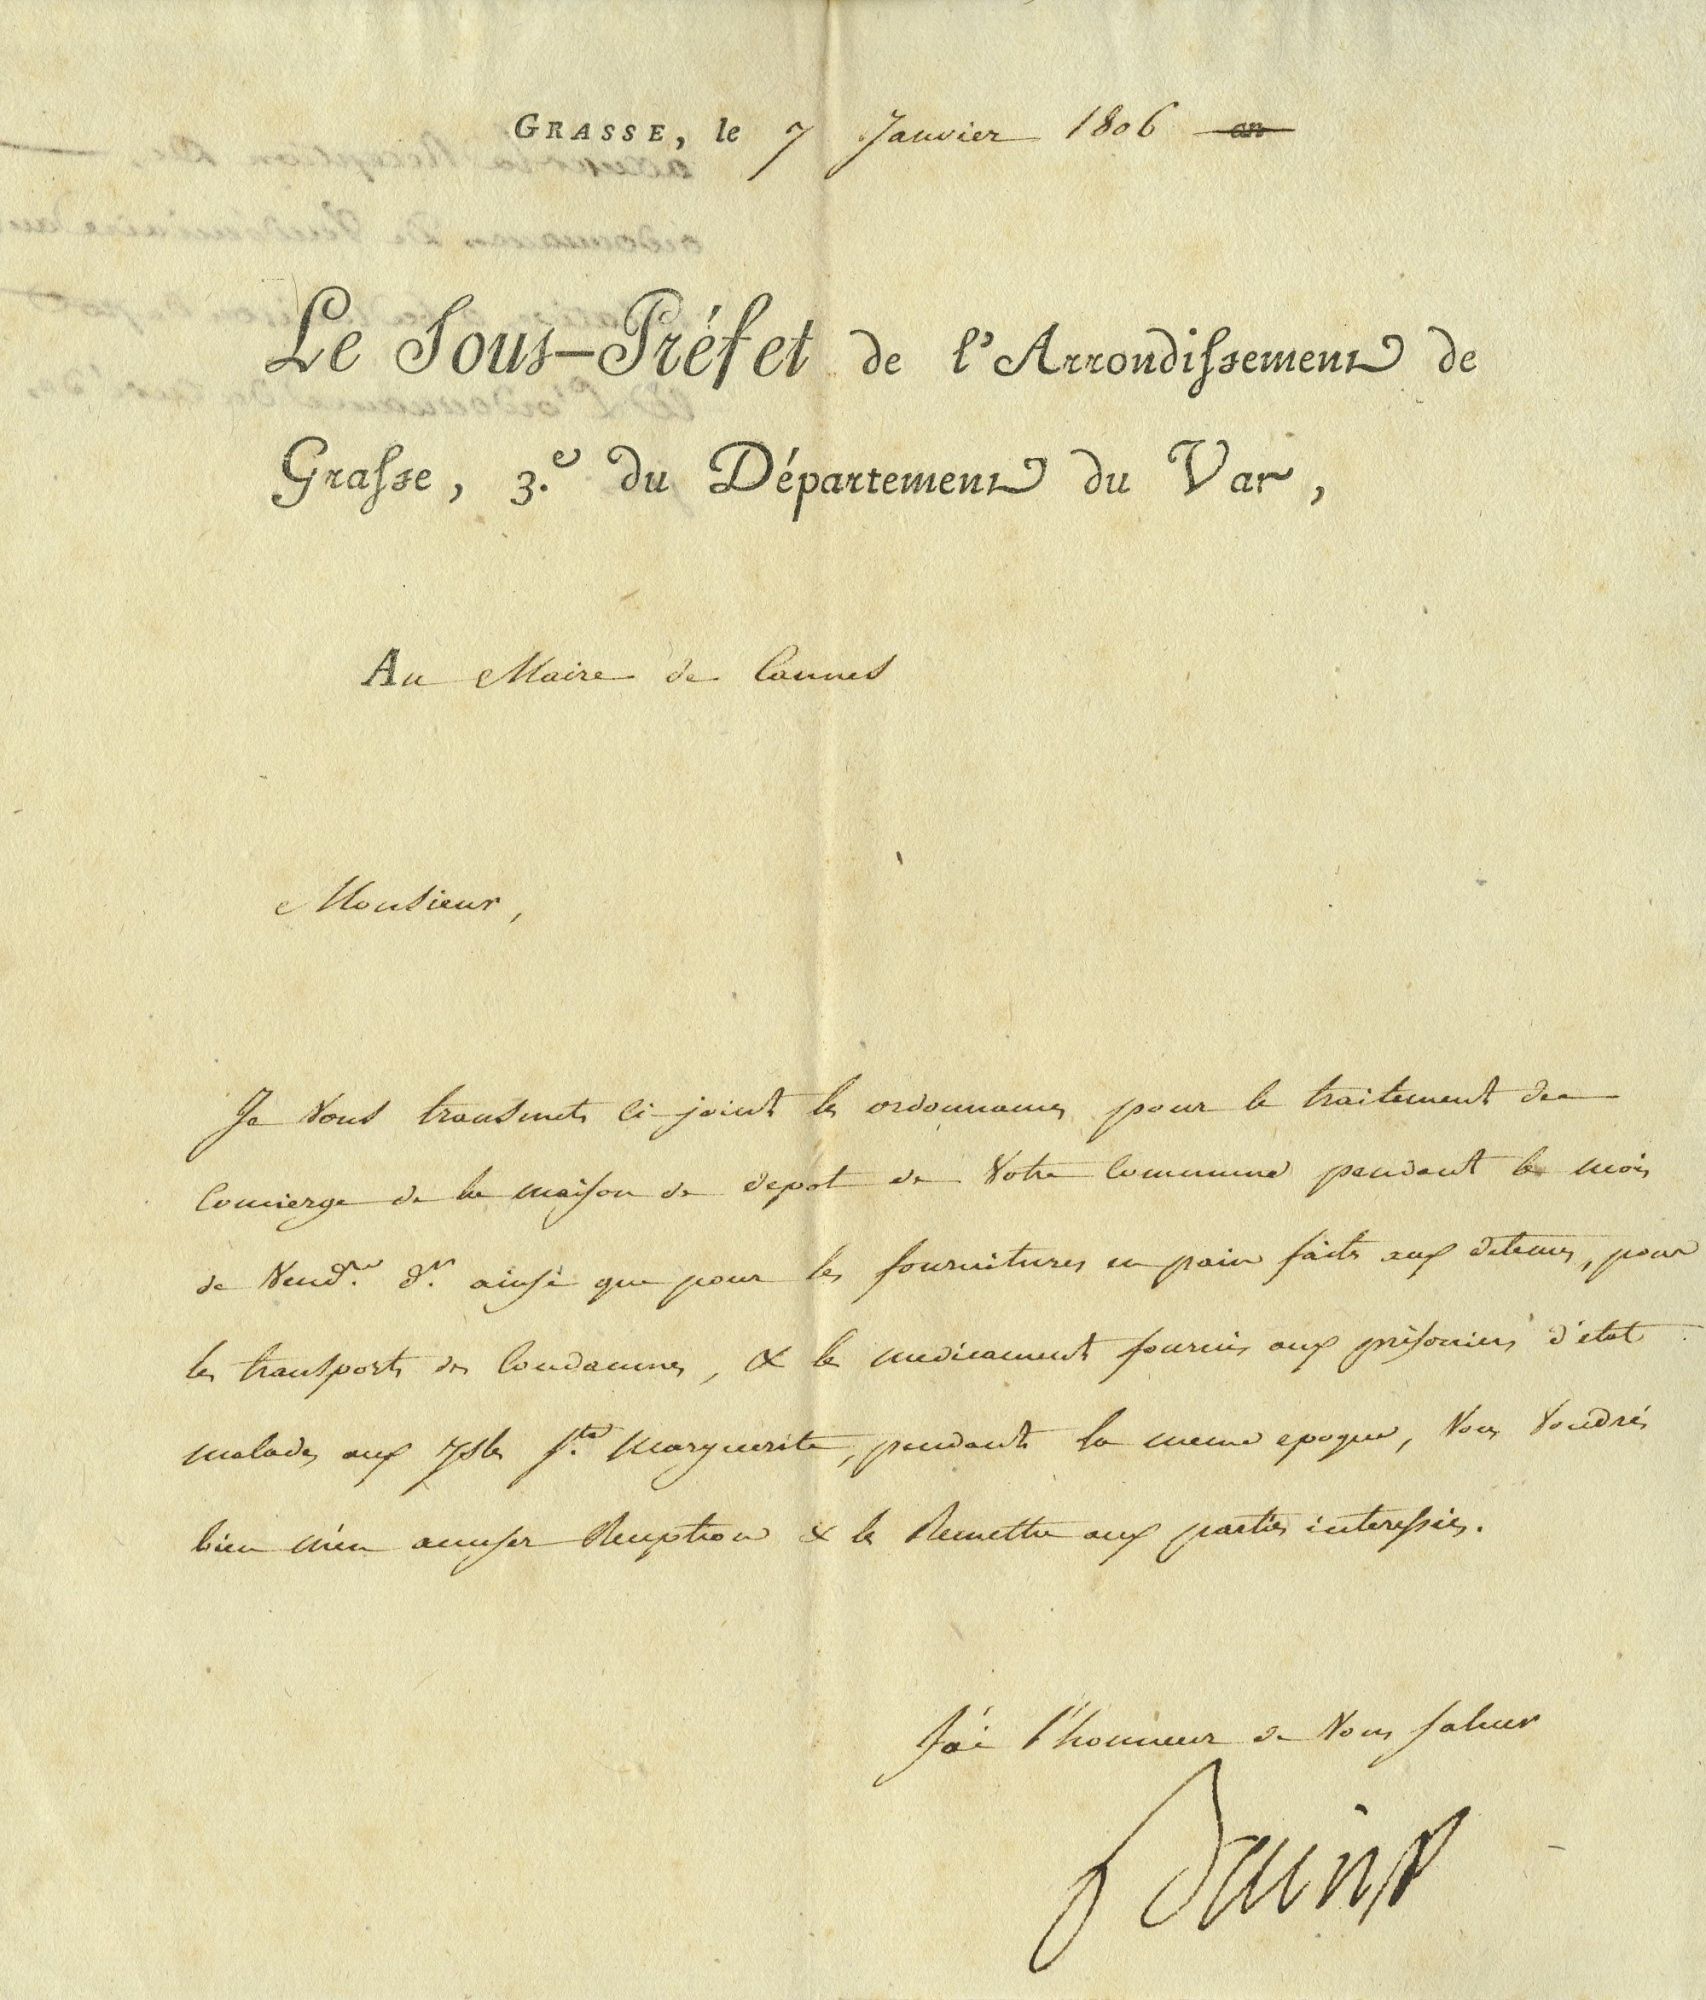 GRASSE, le 7 Janvier 1806 an
Le Sous-Préfet de l'Arrondissement de
Grasse, 3.e du Département du Var,
Au Maire de Cannes
Monsieur,
Je Vous transmets ci-joint les ordonnances pour le traitement du
Concierge de la maison de depot de Votre Commune pendant le mois
de Vend.re d.er ainsi que pour les fournitures en pain faites aux detenus, pour
les transports des Condamnes, & les medicaments fournis aux prisoniers d'etat
malades aux Isles Ste Marguerite, pendant la meme epoque, Vous Voudrés
bien m'en accuser Reception & les Remettre aux parties interessées.
J'ai l'honneur de Vous saluer